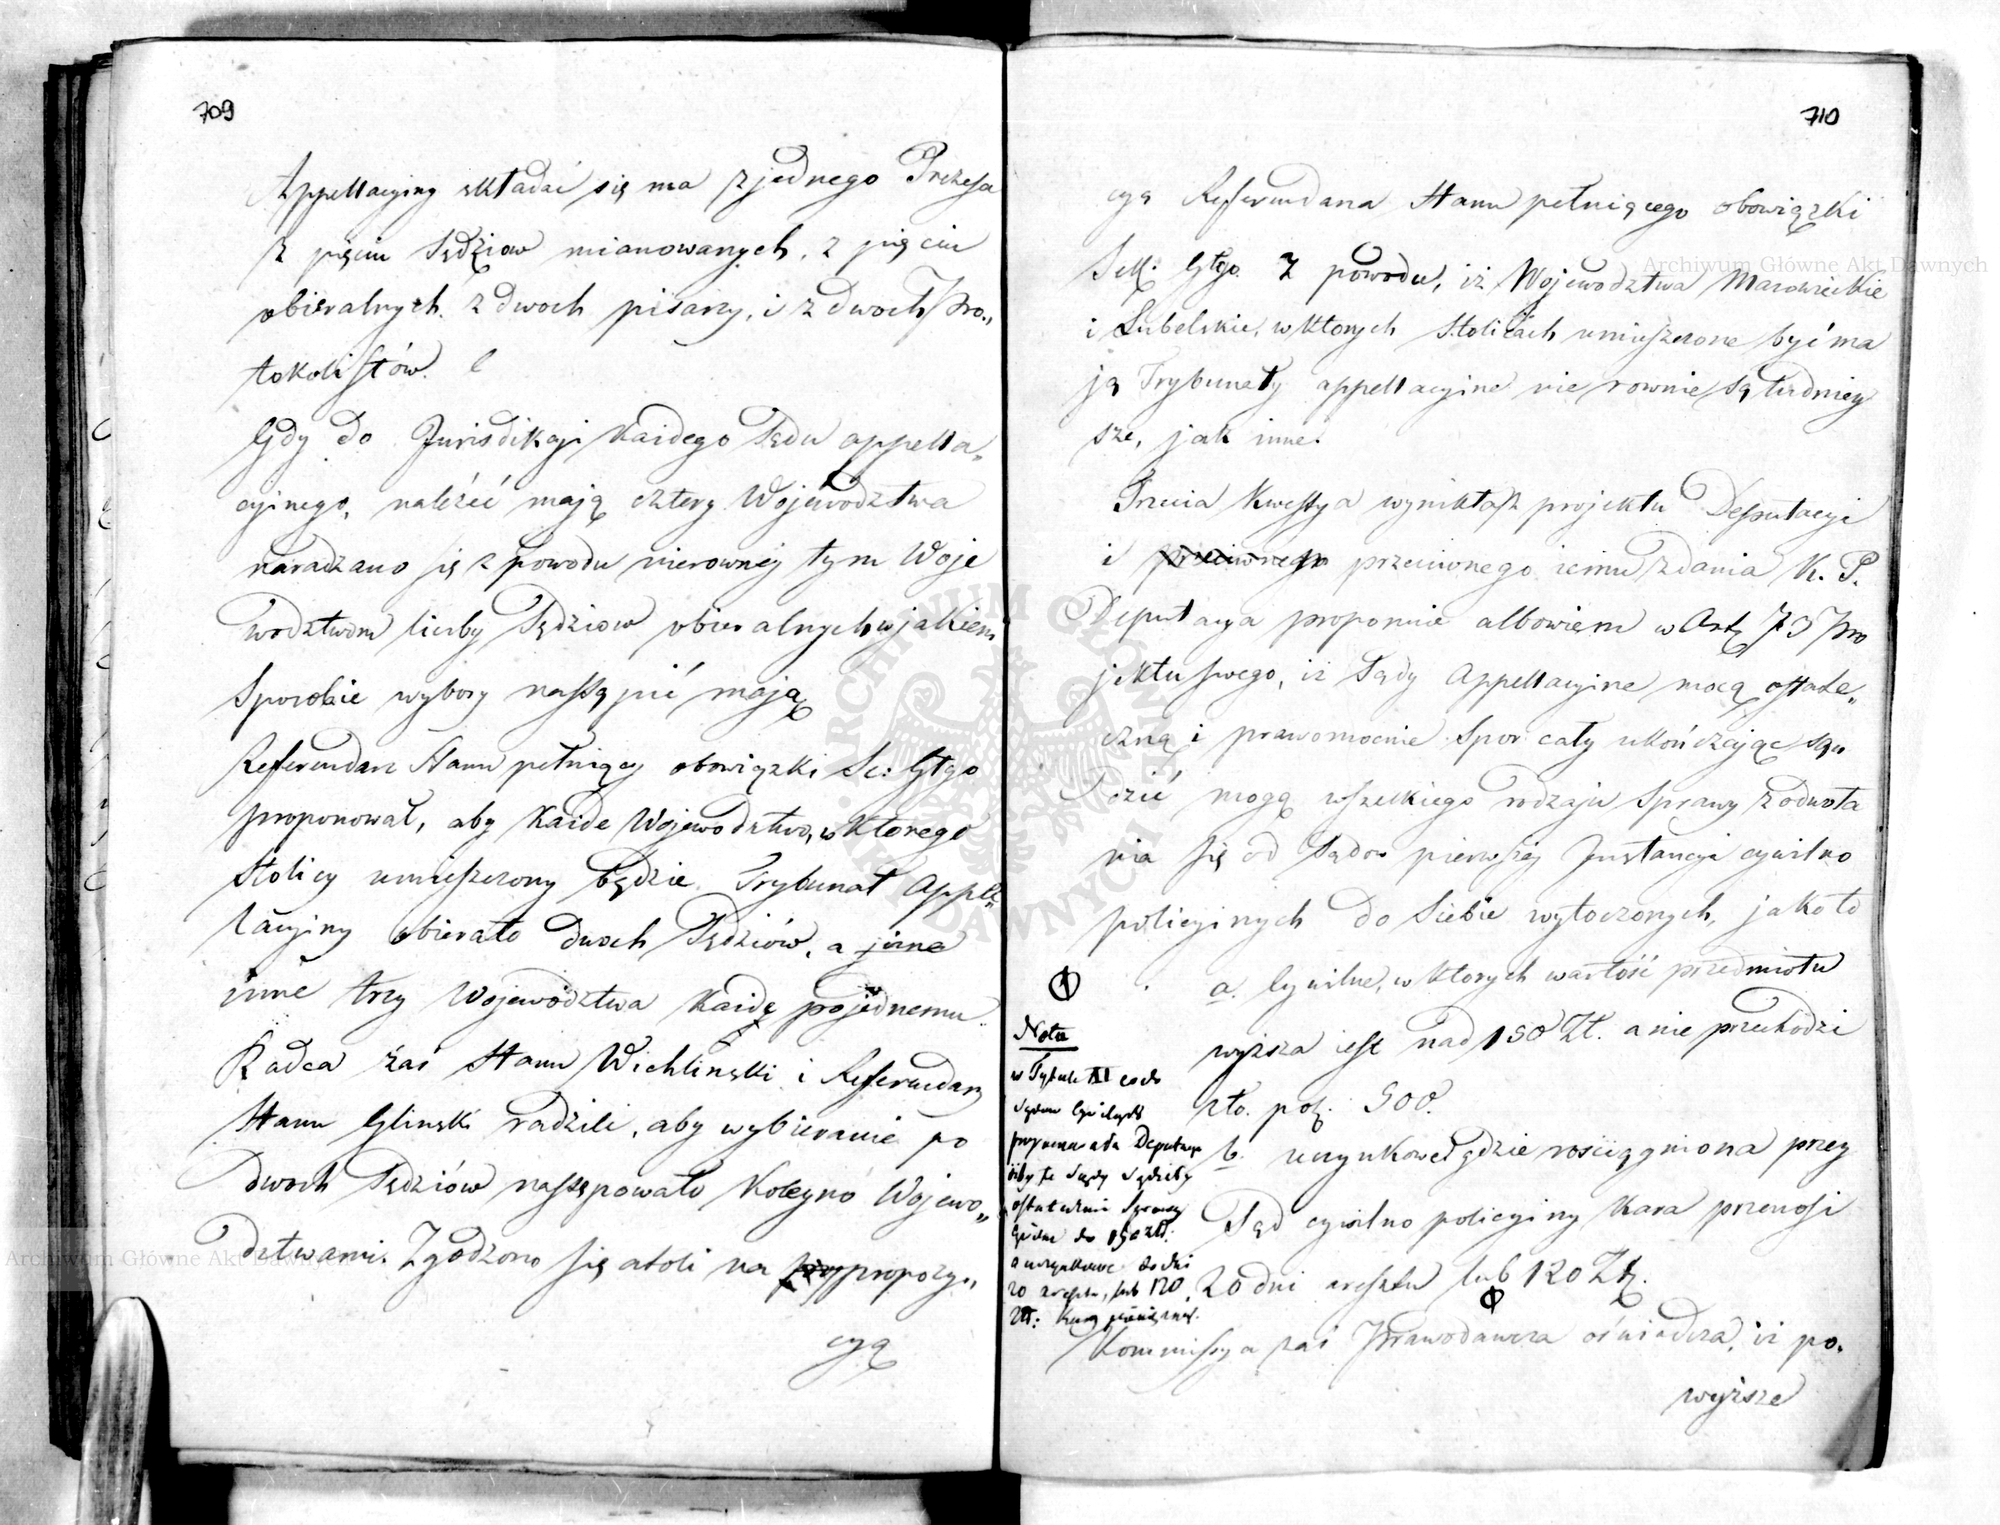 709
Appellacyiny składać się ma z jednego Prezesa
z pięciu Sędziow mianowanych, z pięciu
obieralnych. z dwoch pisarzy, i z dwoch Pro„
tokolistów.
Gdy do Jurisdikcji każdego Sądu appella„
cyinego, należéć mają cztery Wojewodztwa
naradzano się z powodu nierownéy tym Woje
wodztwom liczby Sędziow obieralnych w jakiem
Sposobie wybory nastąpić mają
Referendarz Stanu pełniący obowiązki Se: Głgo
proponował, aby każde Wojewodztwo, w którego
Stolicy umieszczony będzie Trybunał Appel„
lacyiny obierało dwoch Sędziów, a
inne trzy Wojewodztwa każde po jednemu
Radca zaś Stanu Wichliński i Referendarz
Stanu Gliński radzili, aby wybieranie po
dwoch Sędziów następowało koleyno Wojewo„
dztwami. Zgodzono się atoli na propozy„
cyą
710
cyą Referendarza Stanu pełniącego obowiązki
Sek: Głgo. Z powodu, iż Wojewodztwa Mazowieckie
i Lubelskie, w ktorych Stolicach umieszczone być ma
ją Trybunały appellacyine nierownie są ludniey
sze, jak inne.
Trzecia Kwestya wynikła z projektu Deputacyi
i przeciwnego przeciwnego iemu zdania K. P.
Deputacya proponuie albowiem w Art. 75 Pro
jektu swego, iż Sądy Appellacyine mocą ostate„
czną i prawomocnie Spor cały ukończając są„
dzić mogą wszelkiego rodzaju Sprawy z odwoła
nia się od Sądow pierwszéy Instancyi cywilno
policyinych do Siebie wytoczonych, jako to
a. Cywilne, w ktorych wartość przedmiotu
wyższa iest nad 150 Zł. a nie przechodzi
zło. pol. 500.
b. uczynkowe gdzie rosciągniona przez
Sąd cywilno policyiny Kara przenosi
20 dni aresztu lub 120 Zł.
Kommissya zaś Prawodawcza oświadcza, iż po„
wyższe
Nota
w Tytule III co do
Sądow Cywilnych
proponowała Deputacya
iżby te Sądy Sądziły
ostatecznie Sprawy
Cywilne do 150 zł.
a uczynkowe do dni
20 aresztu, lub 120
Zł: Kary pieniężnéy.
Archiwum Główne Akt Dawnych
Archiwum Główne Akt Dawnych
ARCHIWUM GŁÓWNE AKT DAWNYCH